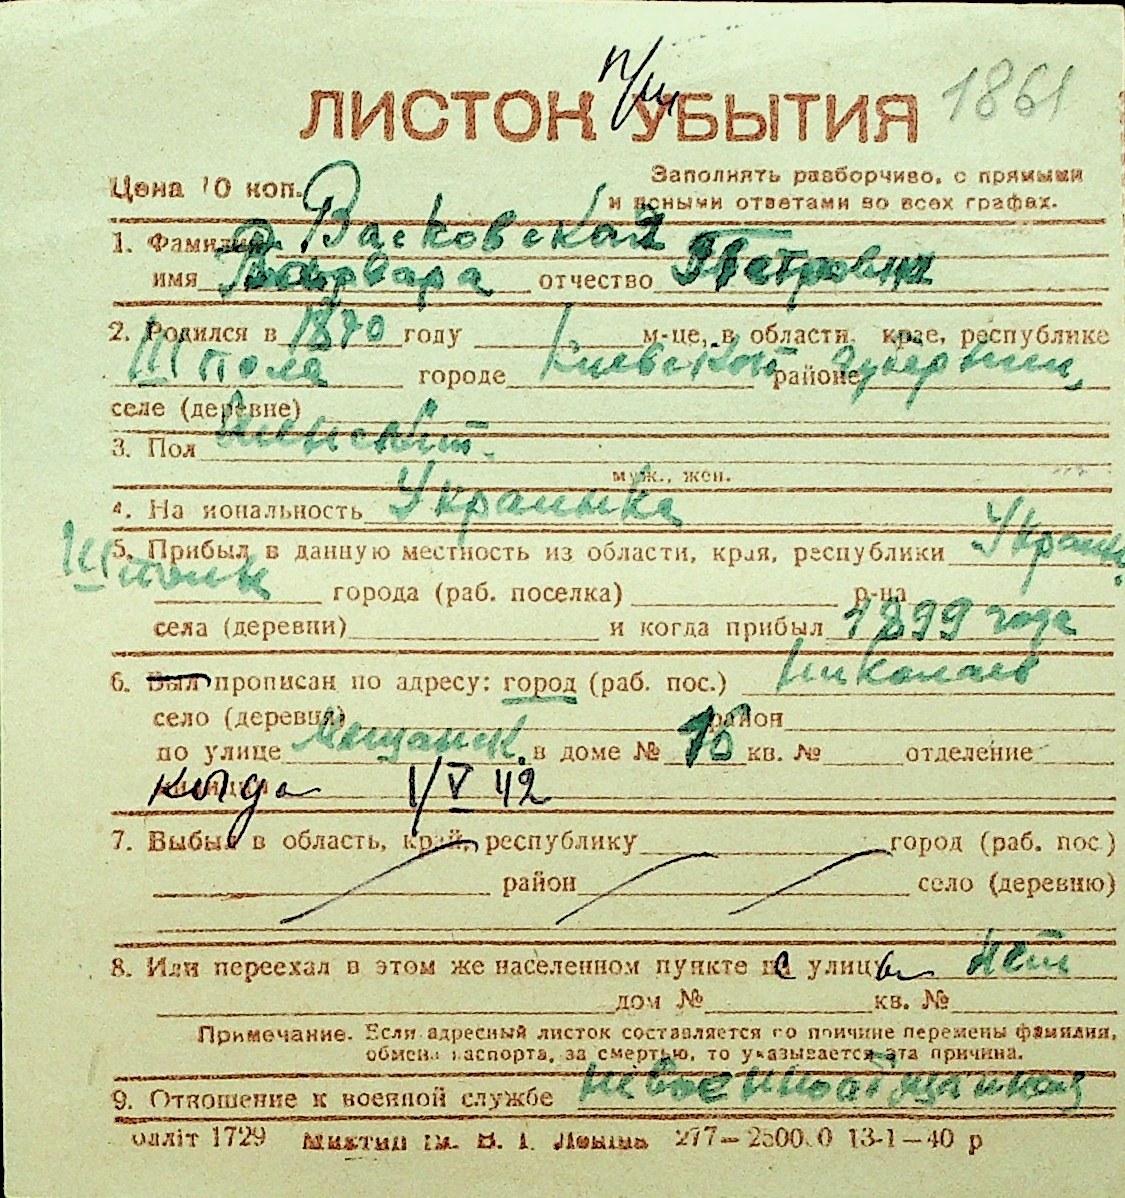 п/ш 1861
ЛИСТОК УБЫТИЯ
Цена 10 коп. Заполнять разборчиво, с прямыми
и ясными ответами во всех графах.
1. Фамилия Васковская
имя Варвара отчество Петровна
2. Родился в 1870 году м-це, в области, крае, республике
Шпола городе Киевской районе губернии,
селе (деревне)
3. Пол женский.
муж., жен.
4. Национальность Украинка
5. Прибыл в данную местность из области, края, республики Украин.
Шполи города (раб. поселка) р-на
села (деревни) и когда прибыл 1899 года
6. Был прописан по адресу: город (раб. пос.) Николаев
село (деревня) район
по улице Мещанск. в доме № 16 кв. № отделение
милиции когда 1/V 42
7. Выбыл в область, край, республику город (раб. пос.)
район село (деревню)
8. Или переехал в этом же населенном пункте с улицы нет
дом № кв. №
Примечание. Если адресный листок составляется по причине перемены фамилия,
обмена паспорта, за смертью, то указывается эта причина.
9. Отношение к военной службе невоеннообязанная
блліт 1729 В. І. Леніна 277—2500.0 13-1—40 р